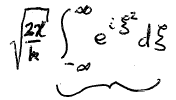 √(2π/k) ∫_{-∞}^{∞} e^{iξ²} dξ